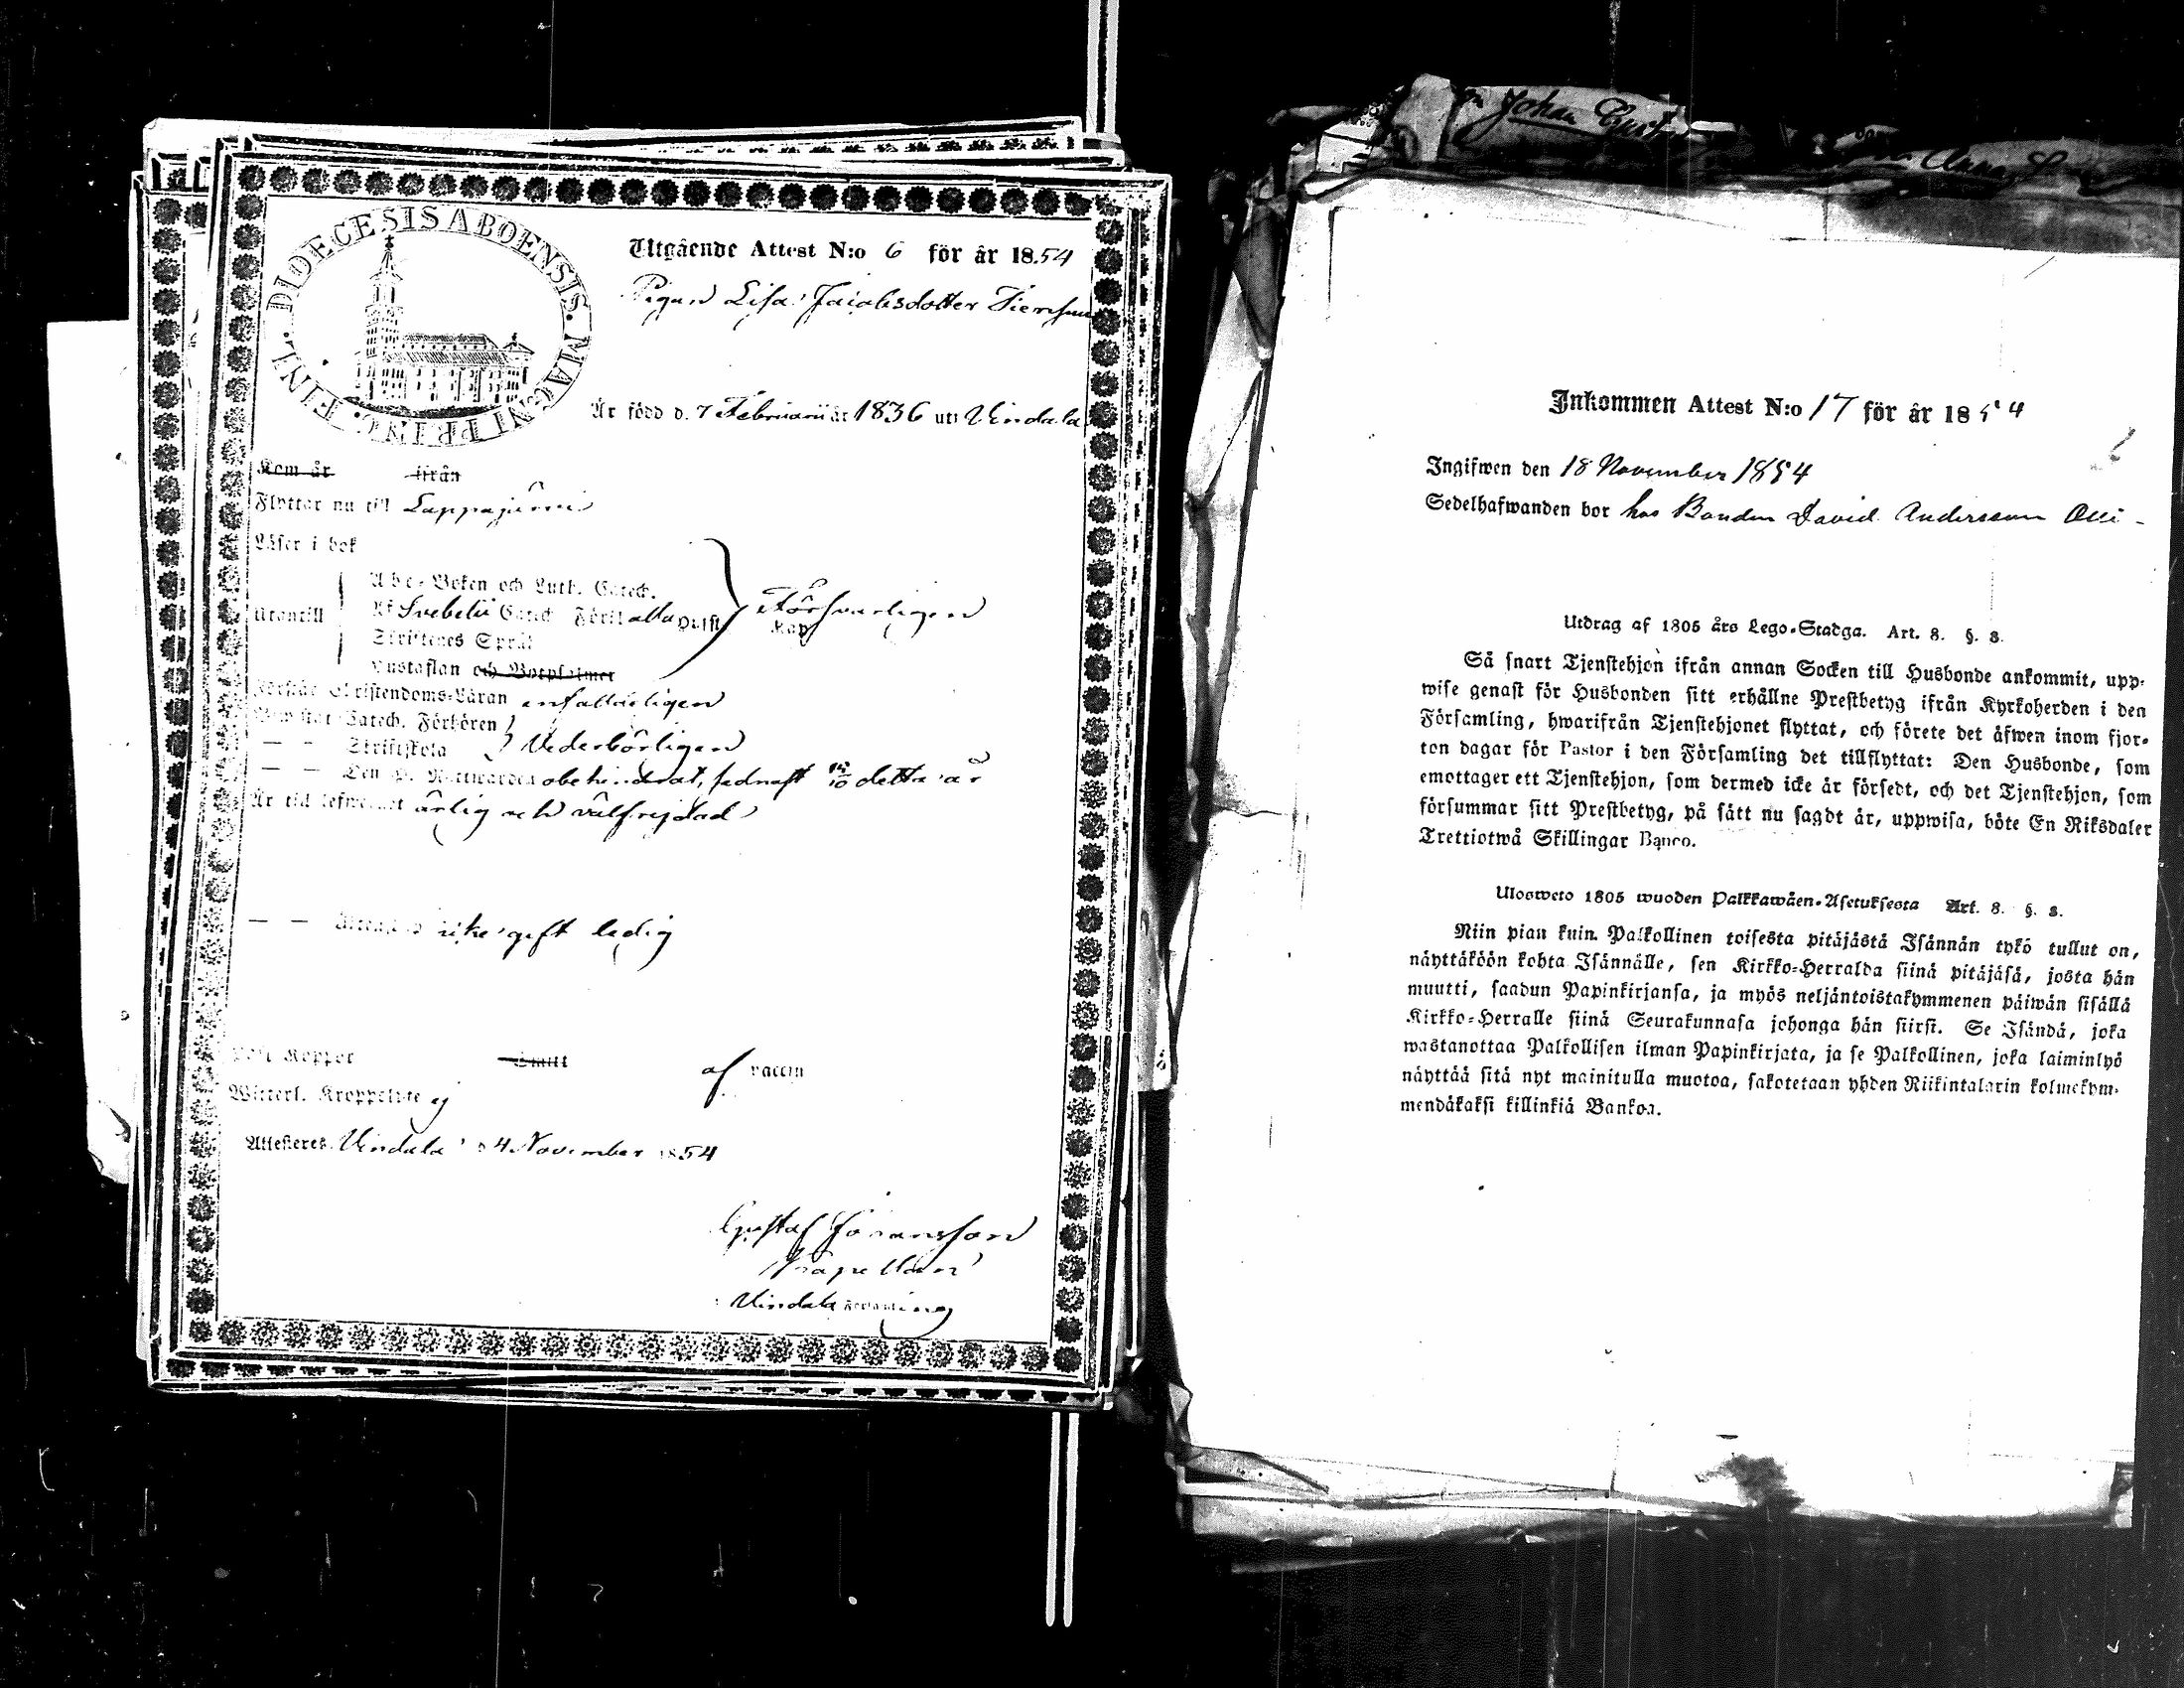 DIOECESIS ABOENSIS. MAGNI PRINC. FINL.
Utgående Attest N:o 6 för år 1854
Pigan Lisa Jacobsdotter
Är född d. 7 Februarii år 1836 uti Vindala
Kom år ifrån
Flyttar nu till Lappajärvi
Läser i bok
Utantill
Abc-Boken och Luth. Catech.
Af Svebelii Catech. Förkl alla
Försvarligen
Skriftenes Språk
Hustaflan och Botpsalmer
Förstår Christendoms-Läran enfalldeligen
Bewistat Catech. Förhören
— — Skriftskola
Vederbörligen
— — Den H. Nattwarden obehindrat, sednast detta år
Är till lefwernet ärlig och välfrejdad
— — Äktenskap icke gift ledig
Haft Koppor Smitt af vaccin
Witterl. Kroppslyte ej
Attesteras Vindala d 4 November 1854
Gustaf Joransson
Kapellan
Vindala
Johan
Anna
Inkommen Attest N:o 17 för år 1854
Ingifwen den 18 November 1854
Sedelhafwanden bor hos Bonden David Andersson Olli -
Utdrag af 1805 års Lego-Stadga. Art. 8. §. 8.
Så snart Tjenstehjon ifrån annan Socken till Husbonde ankommit, upp-
wise genast för Husbonden sitt erhållne Prestbetyg ifrån Kyrkoherden i den
Församling, hwarifrån Tjenstehjonet flyttat, och förete det äfwen inom fjor-
ton dagar för Pastor i den Församling det tillflyttat: Den Husbonde, som
emottager ett Tjenstehjon, som dermed icke är försedt, och det Tjenstehjon, som
försummar sitt Prestbetyg, på sätt nu sagdt är, uppwisa, böte En Riksdaler
Trettiotwå Skillingar Banco.
Ulosweto 1805 wuoden Palkkawäen-Asetuksesta Art. 8. §. 8.
Niin pian kuin Palkollinen toisesta pitäjästä Isännän tykö tullut on,
näyttäköön kohta Isännälle, sen Kirkko-Herralda siinä pitäjäsä, josta hän
muutti, saadun Papinkirjansa, ja myös neljäntoistakymmenen päiwän sisällä
Kirkko-Herralle siinä Seurakunnasa johonga hän siirsi. Se Isändä, joka
wastanottaa Palkollisen ilman Papinkirjata, ja se Palkollinen, joka laiminlyö
näyttää sitä nyt mainitulla muotoa, sakotetaan yhden Riikintalarin kolmekym-
mendäkaksi killinkiä Bankoa.